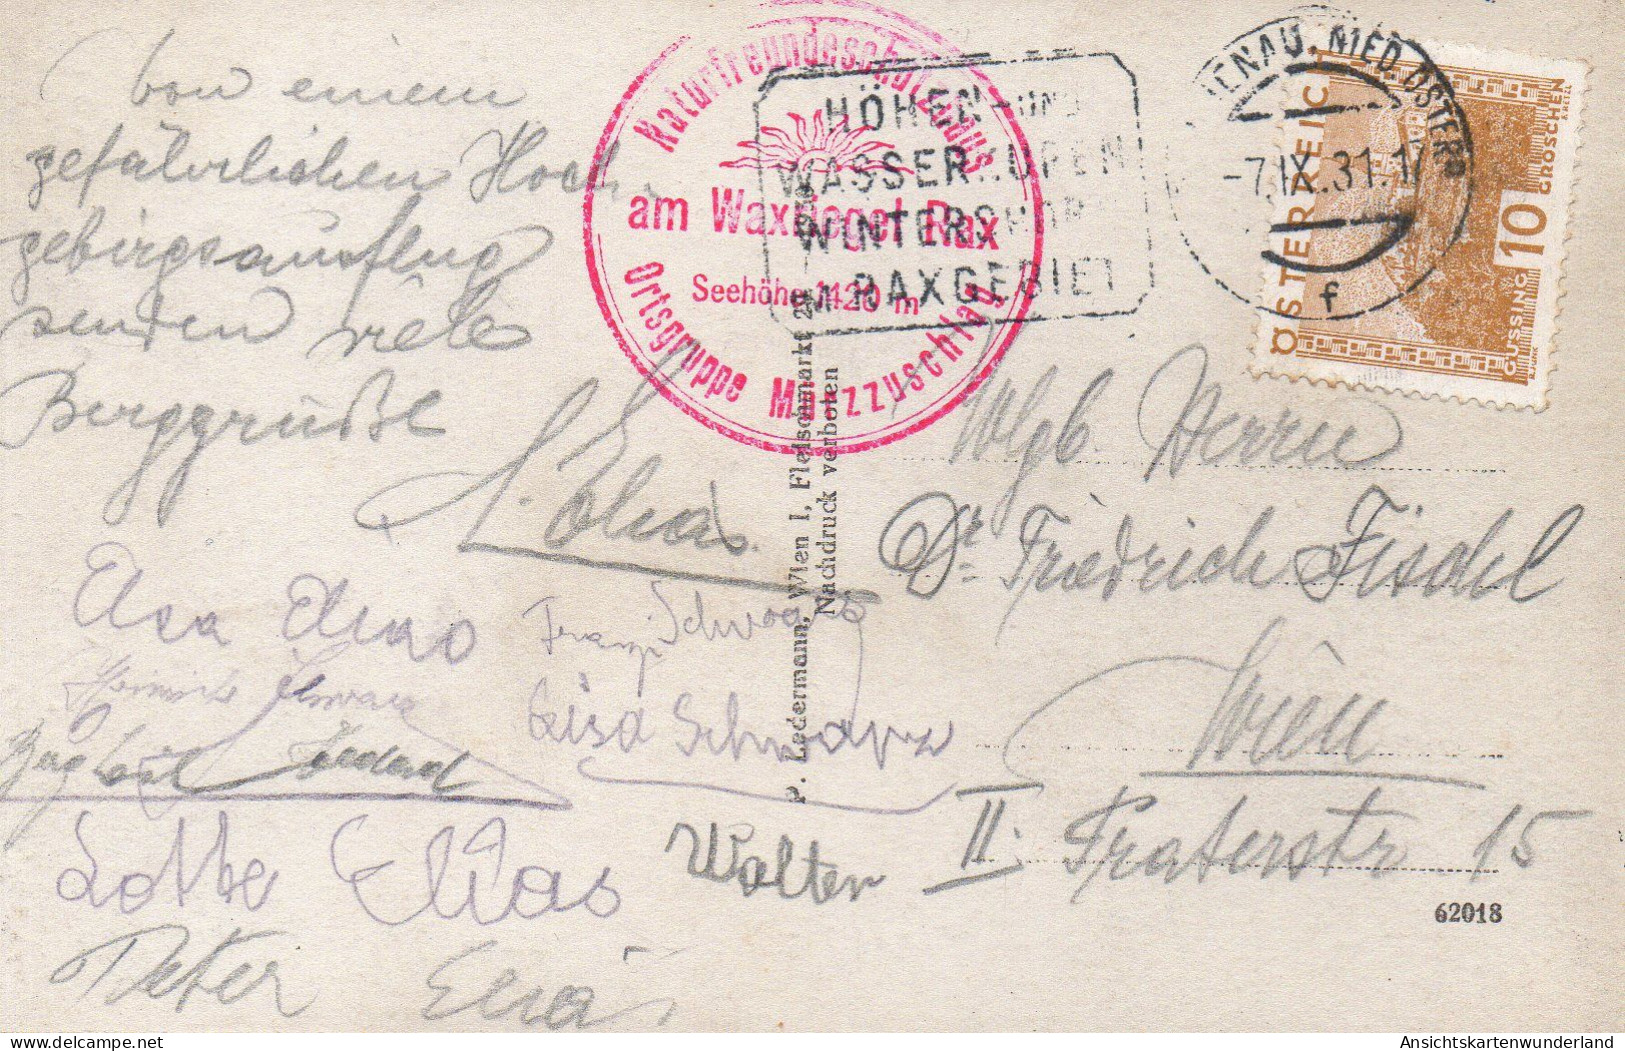 Von einem
gefährlichen Hoch-
gebirgsausflug
senden viele
Berggrüße
Elias
Elsa Elias
Franzi Schwarz
Heinrich Schwarz
Lisa Schwarz
Lotte Elias
Walter
Peter Elias
Naturfreundeschutzhaus
am Waxriegel Rax
Seehöhe 1420 m
Ortsgruppe Mürzzuschlag
HÖHEN- UND
WASSERKUREN
WINTERSPORT
IM RAXGEBIET
NIED. ÖSTERR.
-7.IX.31.17
f
ÖSTERREICH
10 GROSCHEN
GÜSSING
P. Ledermann, Wien I, Fleischmarkt
Nachdruck verboten
Wlgb. Herrn
Dr. Friedrich Fischl
Wien
II. Praterstr 15
62018
AnsichtskartenwunderIand